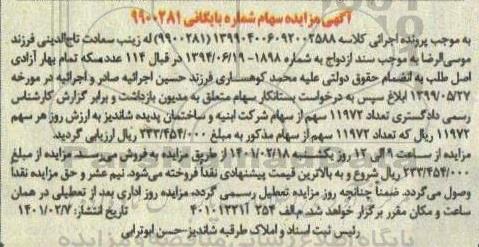 آگهی مزایده سهام شماره بایگانی ۹۹۰۰۲۸۱
به موجب پرونده اجرائی کلاسه ۱۳۹۹۰۴۰۰۶۰۹۲۰۰۲۵۸۸ (۹۹۰۰۲۸۱) له زینب سعادت تاج‌الدینی فرزند
موسی‌الرضا به موجب سند ازدواج به شماره ۱۸۹۸- ۱۳۹۴/۰۶/۱۹ در قبال ۱۱۴ عدد سکه تمام بهار آزادی
اصل طلب به انضمام حقوق دولتی علیه محمد کوهساری فرزند حسین اجرائیه صادر و اجرائیه در مورخه
۱۳۹۹/۰۵/۲۷ ابلاغ سپس به درخواست بستانکار سهام متعلق به مدیون بازداشت و برابر گزارش کارشناس
رسمی دادگستری تعداد ۱۱۹۷۲ سهم از سهام شرکت ابنیه و ساختمان پدیده شاندیز به ارزش روز هر سهم
۱۱۹۷۲ ریال که تعداد ۱۱۹۷۲ سهم از سهام مذکور به مبلغ ۲۳۳/۴۵۴/۰۰۰ ریال ارزیابی گردید.
مزایده از ساعت ۹ الی ۱۲ روز یکشنبه ۱۴۰۱/۰۲/۱۸ از طریق مزایده به فروش می‌رسد مزایده از مبلغ
۲۳۳/۴۵۴/۰۰۰ ریال شروع و به بالاترین قیمت پیشنهادی نقداً فروخته می‌شود. نیم عشر و حق مزایده نقداً
وصول می‌گردد. ضمناً چنانچه روز مزایده تعطیل رسمی گردد، مزایده روز اداری بعد از تعطیلی در همان
ساعت و مکان مقرر برگزار خواهد شد. م.الف ۳۵۴ آ۴۰۱۰۱۳۳۱ تاریخ انتشار: ۱۴۰۱/۰۲/۷
رئیس ثبت اسناد و املاک طرقبه شاندیز-حسن ابوترابی